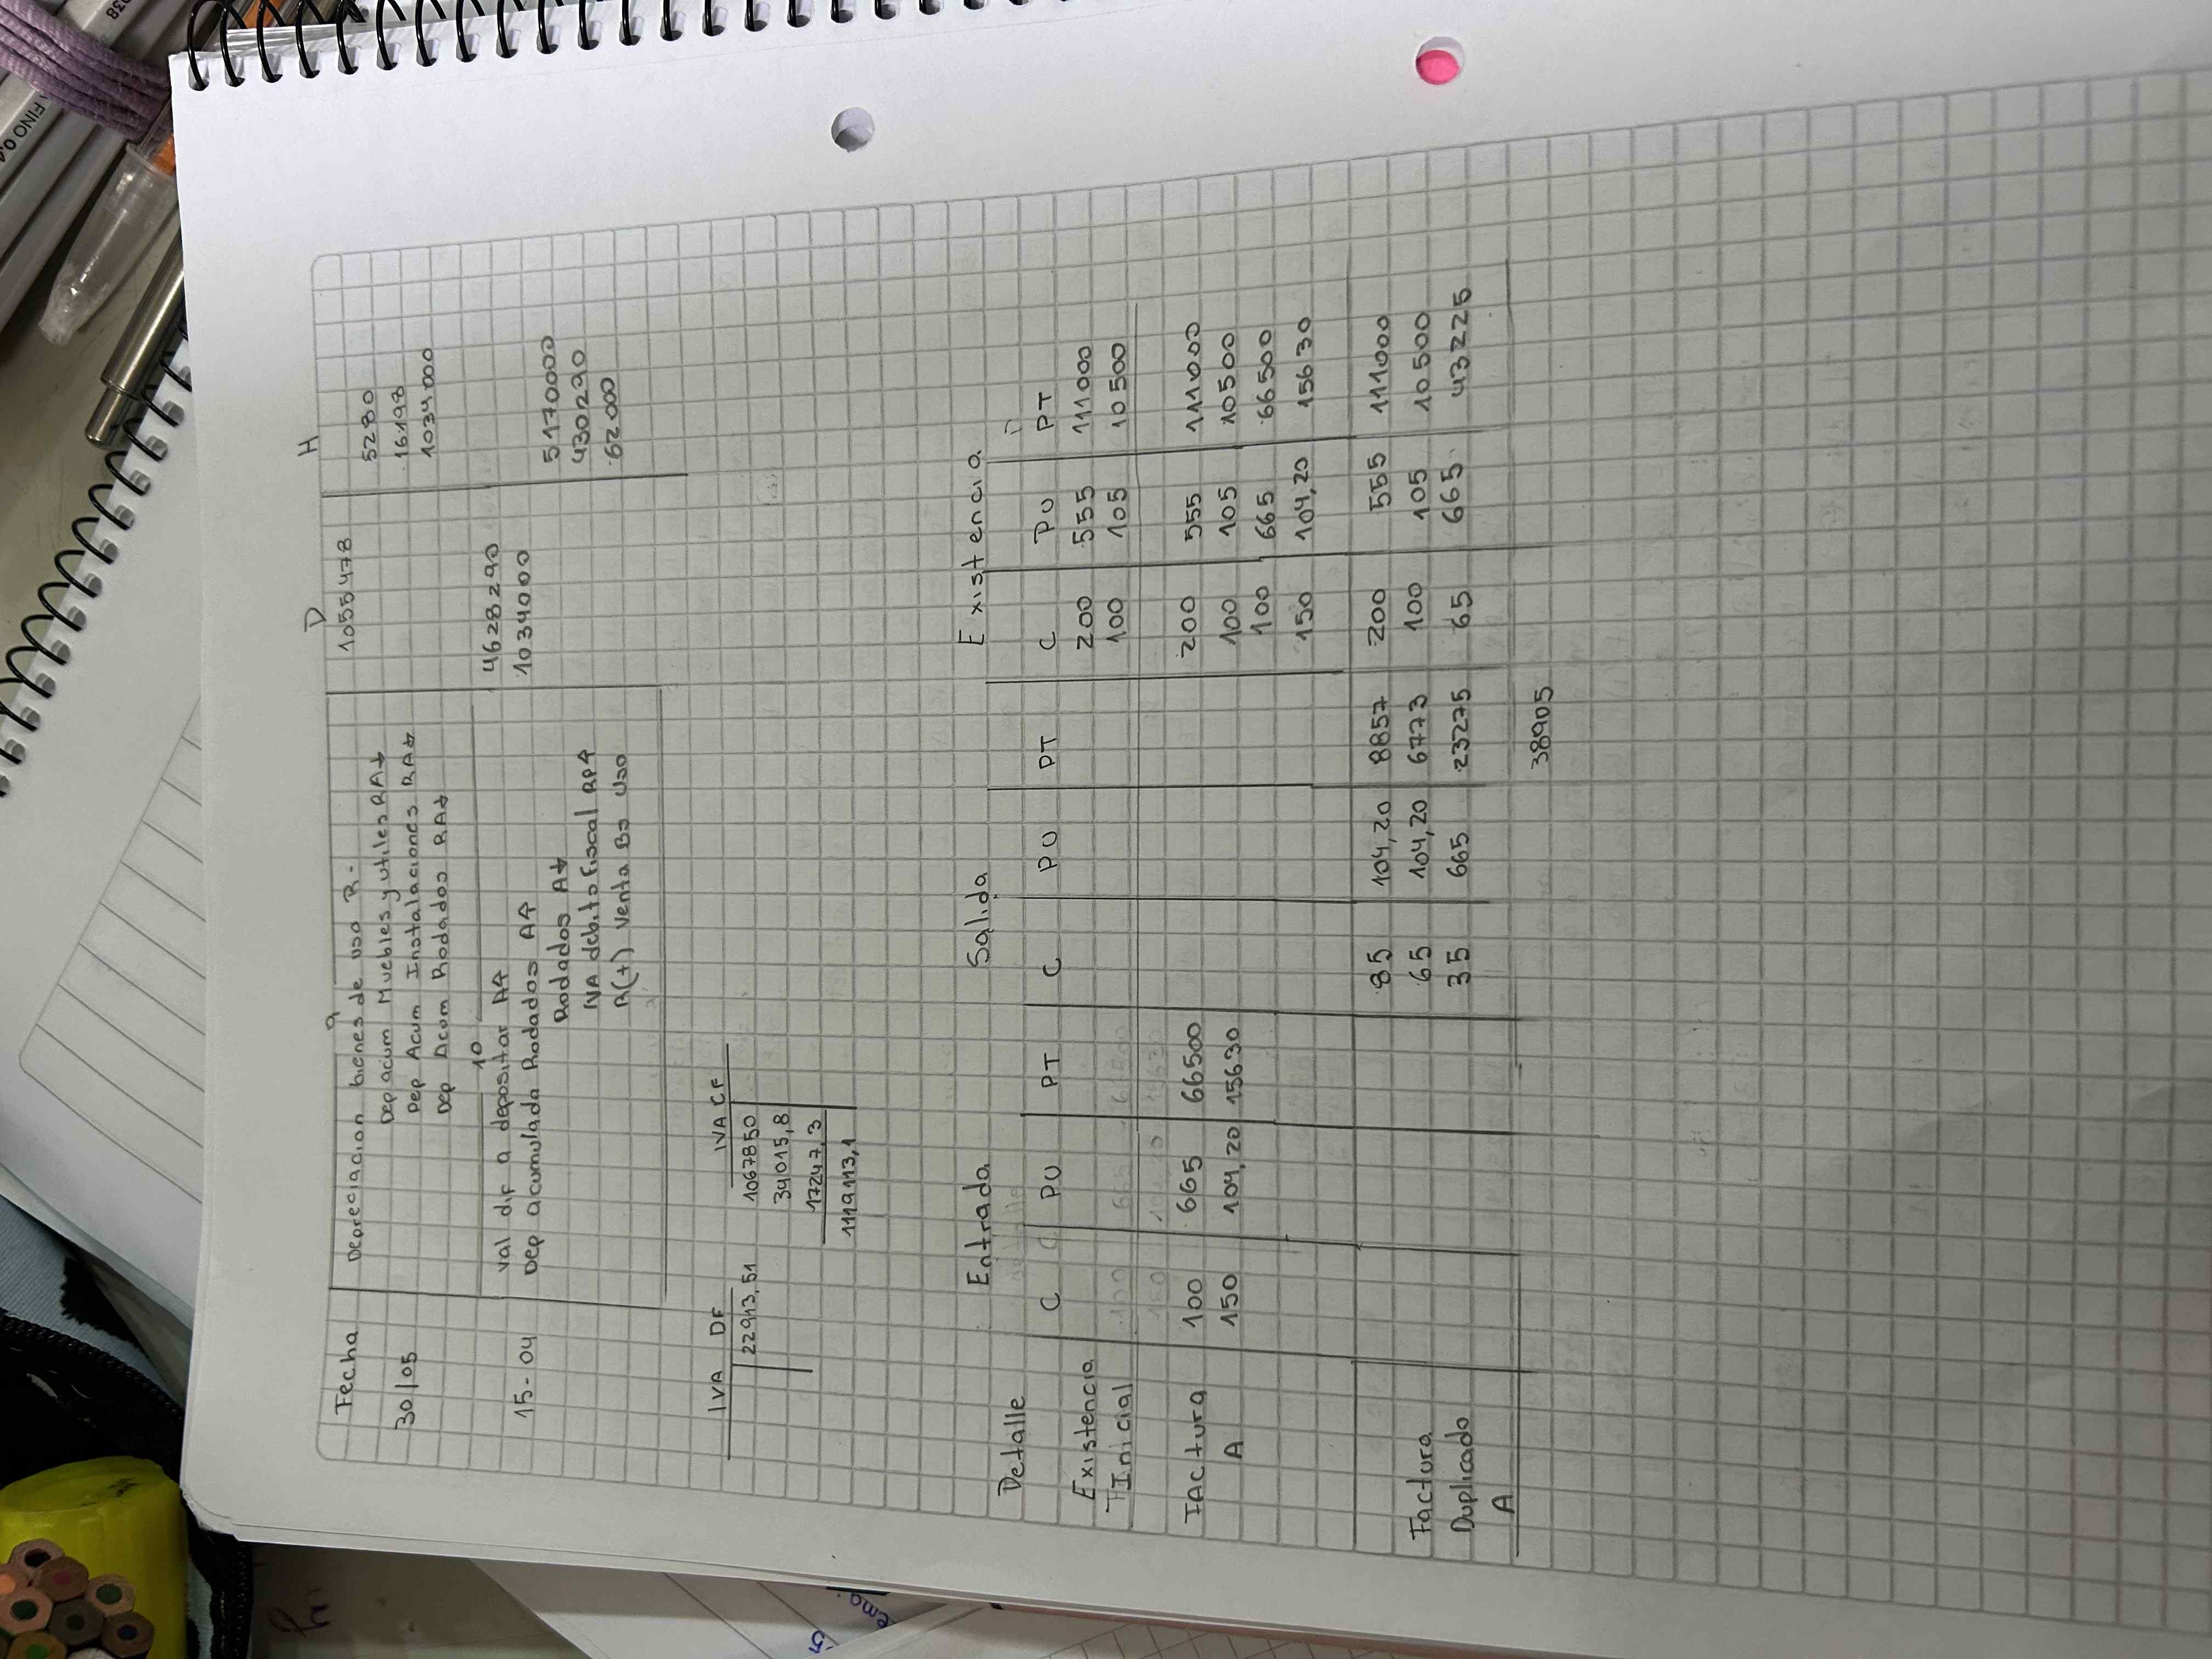 Fecha D H
9
Depreciacion bienes de uso R- 1055478
Dep acum Muebles y utiles RA↓ 5280
30/05 Dep Acum Instalaciones RA↓ 16198
Dep Acum Rodados RA↓ 1034000
10
Val dif a depositar A↑ 4628290
15-04 Dep acumulada Rodados A↑ 1034000
Rodados A↓ 5170000
IVA debito fiscal RP↑ 430290
R(+) Venta Bs Uso 62000
IVA DF IVA CF
22913,51 1067850
34015,8
17247,3
1119113,1
Detalle Entrada Salida Existencia
C PU PT C PU PT C PU PT
Existencia 200 555 111000
Inicial 100 105 10500
Factura 100 665 66500 200 555 111000
A 150 104,20 15630 100 105 10500
100 665 66500
150 104,20 15630
85 104,20 8857 200 555 111000
Factura 65 104,20 6773 100 105 10500
Duplicado 35 665 23275 65 665 43225
A
38905
FINO 0.4